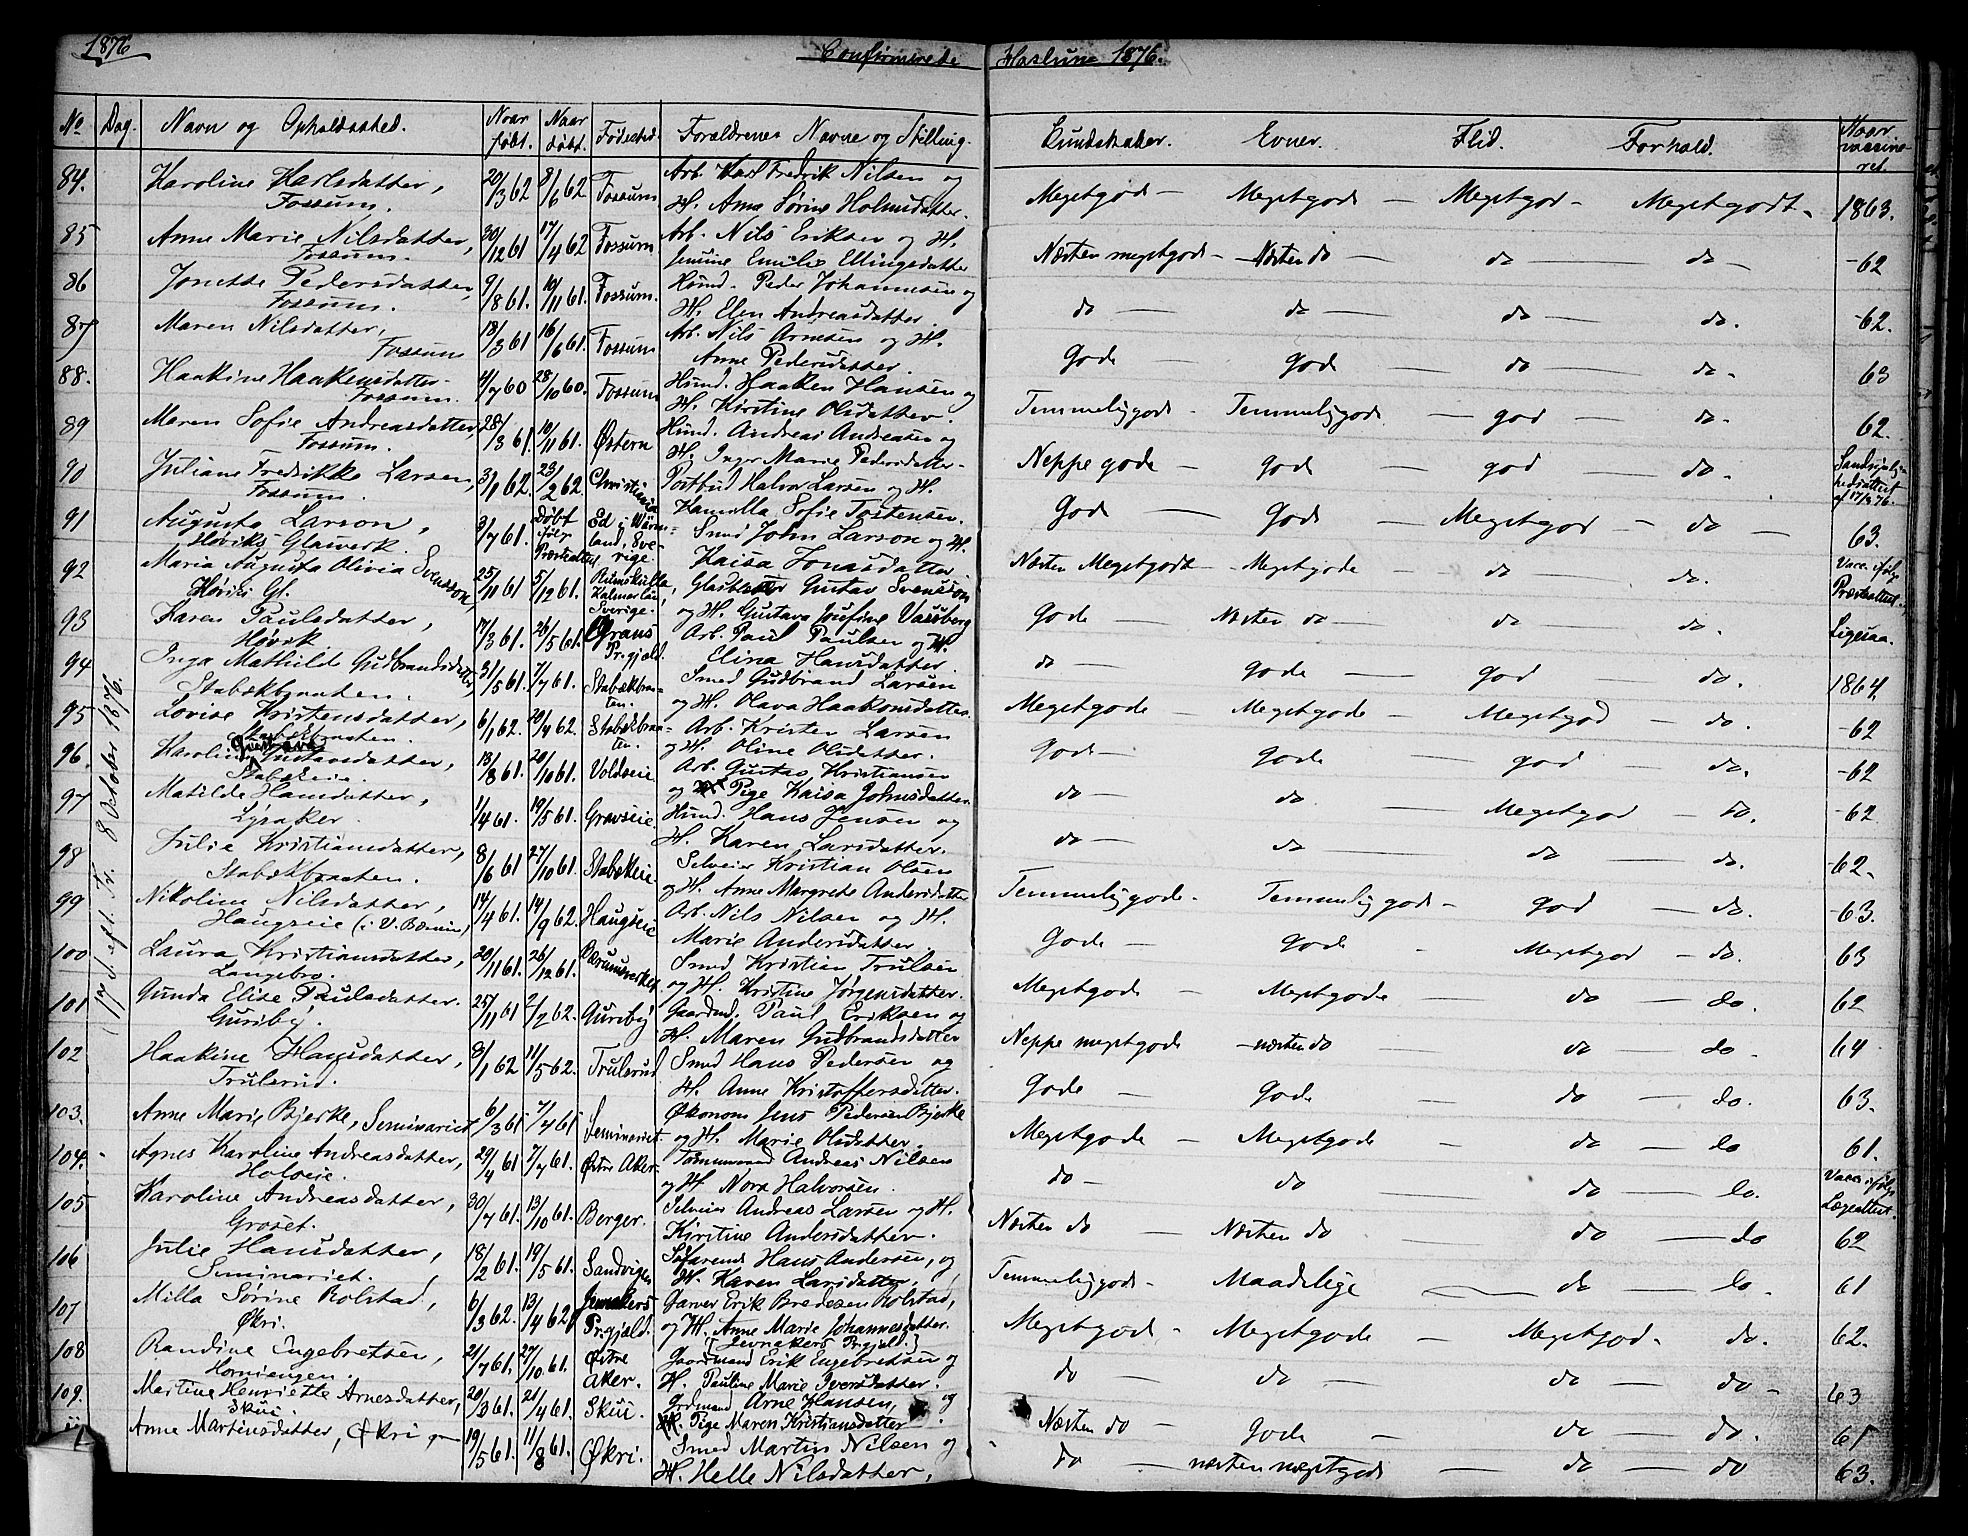 1876
Confirmerede Haslum 1876.
No Dag. Navn og Opholdssted. Naar født. Naar døbt. Fødested. Forældrenes Navne og Stilling. Kundskaber. Evner. Flid. Forhold. Naar vaccineret.
17 Sept. Tr. 8 October 1876.
84. Karoline Karlsdatter, 20/3 62 8/6 62 Fossum Arb. Karl Fredrik Nilsen og Megetgod — Megetgode — Megetgod — Megetgodt. 1863.
Fossum. H. Anna Sørine Holmsdatter.
85 Anne Marie Nilsdatter, 30/12 61 17/4 62 Fossum Arb. Nils Eriksen og H. Næsten megetgode — Næsten do — do — do — -62
Fossum. Jensine Emilie Ellingsdatter
86 Jonette Pedersdatter, 9/8 61. 10/11 61. Fossum. Husmd. Peder Johannesen og do — do — do — do. -62.
Fossum. H. Elen Andreasdatter
87 Maren Nilsdatter, 18/3 61 16/6 61. Fossum Arb. Nils Arnesen og H. Gode — god — do — do. 63
Fossum Anne Pedersdatter.
88. Haakine Haakensdatter. 4/7 60 28/10 60. Fossum Husmd. Haaken Hansen og Temmeliggode — Temmeliggode — god — do. 62.
Fossum. H. Kirstine Olsdatter.
89 Maren Sofie Andreasdatter, 28/3 61 10/11 61. Østern Husmd. Andreas Andreasen og Neppe gode — god — god — do.
Fossum. H. Inger Marie Pedersdatter.
90 Juliane Fredrikke Larsen, 3/1 62. 23/2 62. Christiania Postbud Halvor Larsen og H. God — God — Megetgod — do —
Fossum. Kamilla Sofie Tostensen. af 17/9 76.
91 Augusta Larson, 3/7 61. Døbt ifølge Præsteattest Ed i Wärmland, Sverige Smed John Larson og H. Næsten Megetgodt — Megetgode — do — do. 63.
Høviks Glasverk. Kaisa Jonasdatter
92 Maria Augusta Olivia Svensson, 25/11 61 5/12 61. Rumskulla, Kalmar län, Sverige. Gustav Svensson Gode — Næsten do — do — do. Vacc. ifølge Præsteattest.
Høviks Gl. og H. Gustava Josefine Vassberg
93 Karen Paulsdatter, 17/3 61. 26/5 61. Grans Pr.gjæld. Arb. Paul Paulsen og H. do — gode — god — do. Ligesaa.
Høvik Elina Hansdatter.
94 Inga Mathilde Gudbrandsdatter, 31/5 61. 7/7 61. Stabækbraaten. Smed Gudbrand Larsen Megetgode — Megetgode — Megetgod — do. 1864.
Stabækbraaten. og H. Olava Haakonsdatter.
95 Lovise Kristensdatter, 6/1 62. 20/4 62. Stabækbraaten. Arb. Kristen Larsen gode — gode — god — do. -62
Stabækbraaten. og H. Oline Olsdatter.
96. Karoline Gustava Gustavsdatter, 18/8 61. 20/10 61. Voldseie Arb. Gustav Kristiansen do — do — Megetgod — do. -62
Stabækeie. og Pige Kaisa Johnsdatter
97 Matilde Hansdatter, 1/4 61. 19/5 61. Gravseie. Husmd. Hans Jensen og do — do — do — do. -62
Lysaker. H. Karen Larsdatter.
98 Julie Kristiansdatter, 8/6 61 27/10 61. Stabækeie. Selveier Kristian Olsen Temmeliggode. Temmeliggode — god — do. -62.
Stabækbraaten. og H. Anne Margrete Andersdatter
99 Nikoline Nilsdatter, 14/4 61. 14/9 62. Haugseie Arb. Nils Nilsen og H. Gode — gode — Megetgod — do. -63.
Haugseie (i V. Bærum) Marie Andersdatter.
100 Laura Kristiansdatter, 20/11 61. 26/12 61. Bærumsverket Smed Kristian Trulsen Megetgode — Megetgode — do — do. 63
Langebro. og H. Kristine Jørgensdatter.
101 Gunda Elise Paulsdatter. 25/11 61 2/2 62. Gursby Gaardmd. Paul Eriksen og Neppe megetgode — næsten do — do — do. 62
Gursby. H. Maren Gudbrandsdatter
102 Haakine Hansdatter, 8/1 62 11/5 62. Trulsrud Smed Hans Pedersen og gode — gode — do — do. 64
Trulsrud. H. Anne Kristoffersdatter.
103. Anne Marie Bjerke, Seminariet 6/3 61 7/4 61 Seminariet. Økonom Jens Pedersen Bjerke Megetgode — Megetgode — do — do 63.
og H. Marie Olsdatter.
104. Agnes Karoline Andreasdatter, 29/4 61 7/7 61. Østre Aker. Tømmermand Andreas Nilsen do — do — do — do. 61.
Holseie. og H. Nora Halvorsen.
105 Karoline Andreasdatter, 30/7 61. 13/10 61. Berger. Selveier Andreas Larsen og H. Næsten do — Næsten do — do — do Vacc. ifølge Lægeattest.
Groset. Kirstine Andersdatter.
106 Julie Hansdatter, 18/2 61. 19/5 61. Sandvigen Søfarende Hans Andersen, og Temmeliggode — Maadelige — do — do. 62
Seminariet. H. Karen Larsdatter,
107 Milla Sørine Rolstad, 6/3 62. 13/4 62 Jevnakers Pr.gjæld. Garver Erik Bredesen Rolstad, Megetgode — Megetgode — Megetgod — do. 61
Økri. og H. Anne Marie Johannesdatter.
(Jevnakers Prgjæld.)
108 Randine Engebretsen, 21/7 61. 27/10 61. Østre Aker. Gaardmand Erik Engebretsen og do — do — do — do — 62.
Horniengen. H. Pauline Marie Iversdatter.
109. Martine Henriette Arnesdatter, 20/3 61. 21/4 61. Skui. Grdmand Arne Hansen, og Næsten do — Gode — do — do. 63
Skui. Pige Maren Kristiansdatter
Anne Martinsdatter, Økri 19/5 61. 11/8 61. Økri. Smed Martin Nilsen og do — næsten megetgode — do — do 61
H. Helle Nilsdatter, 63.